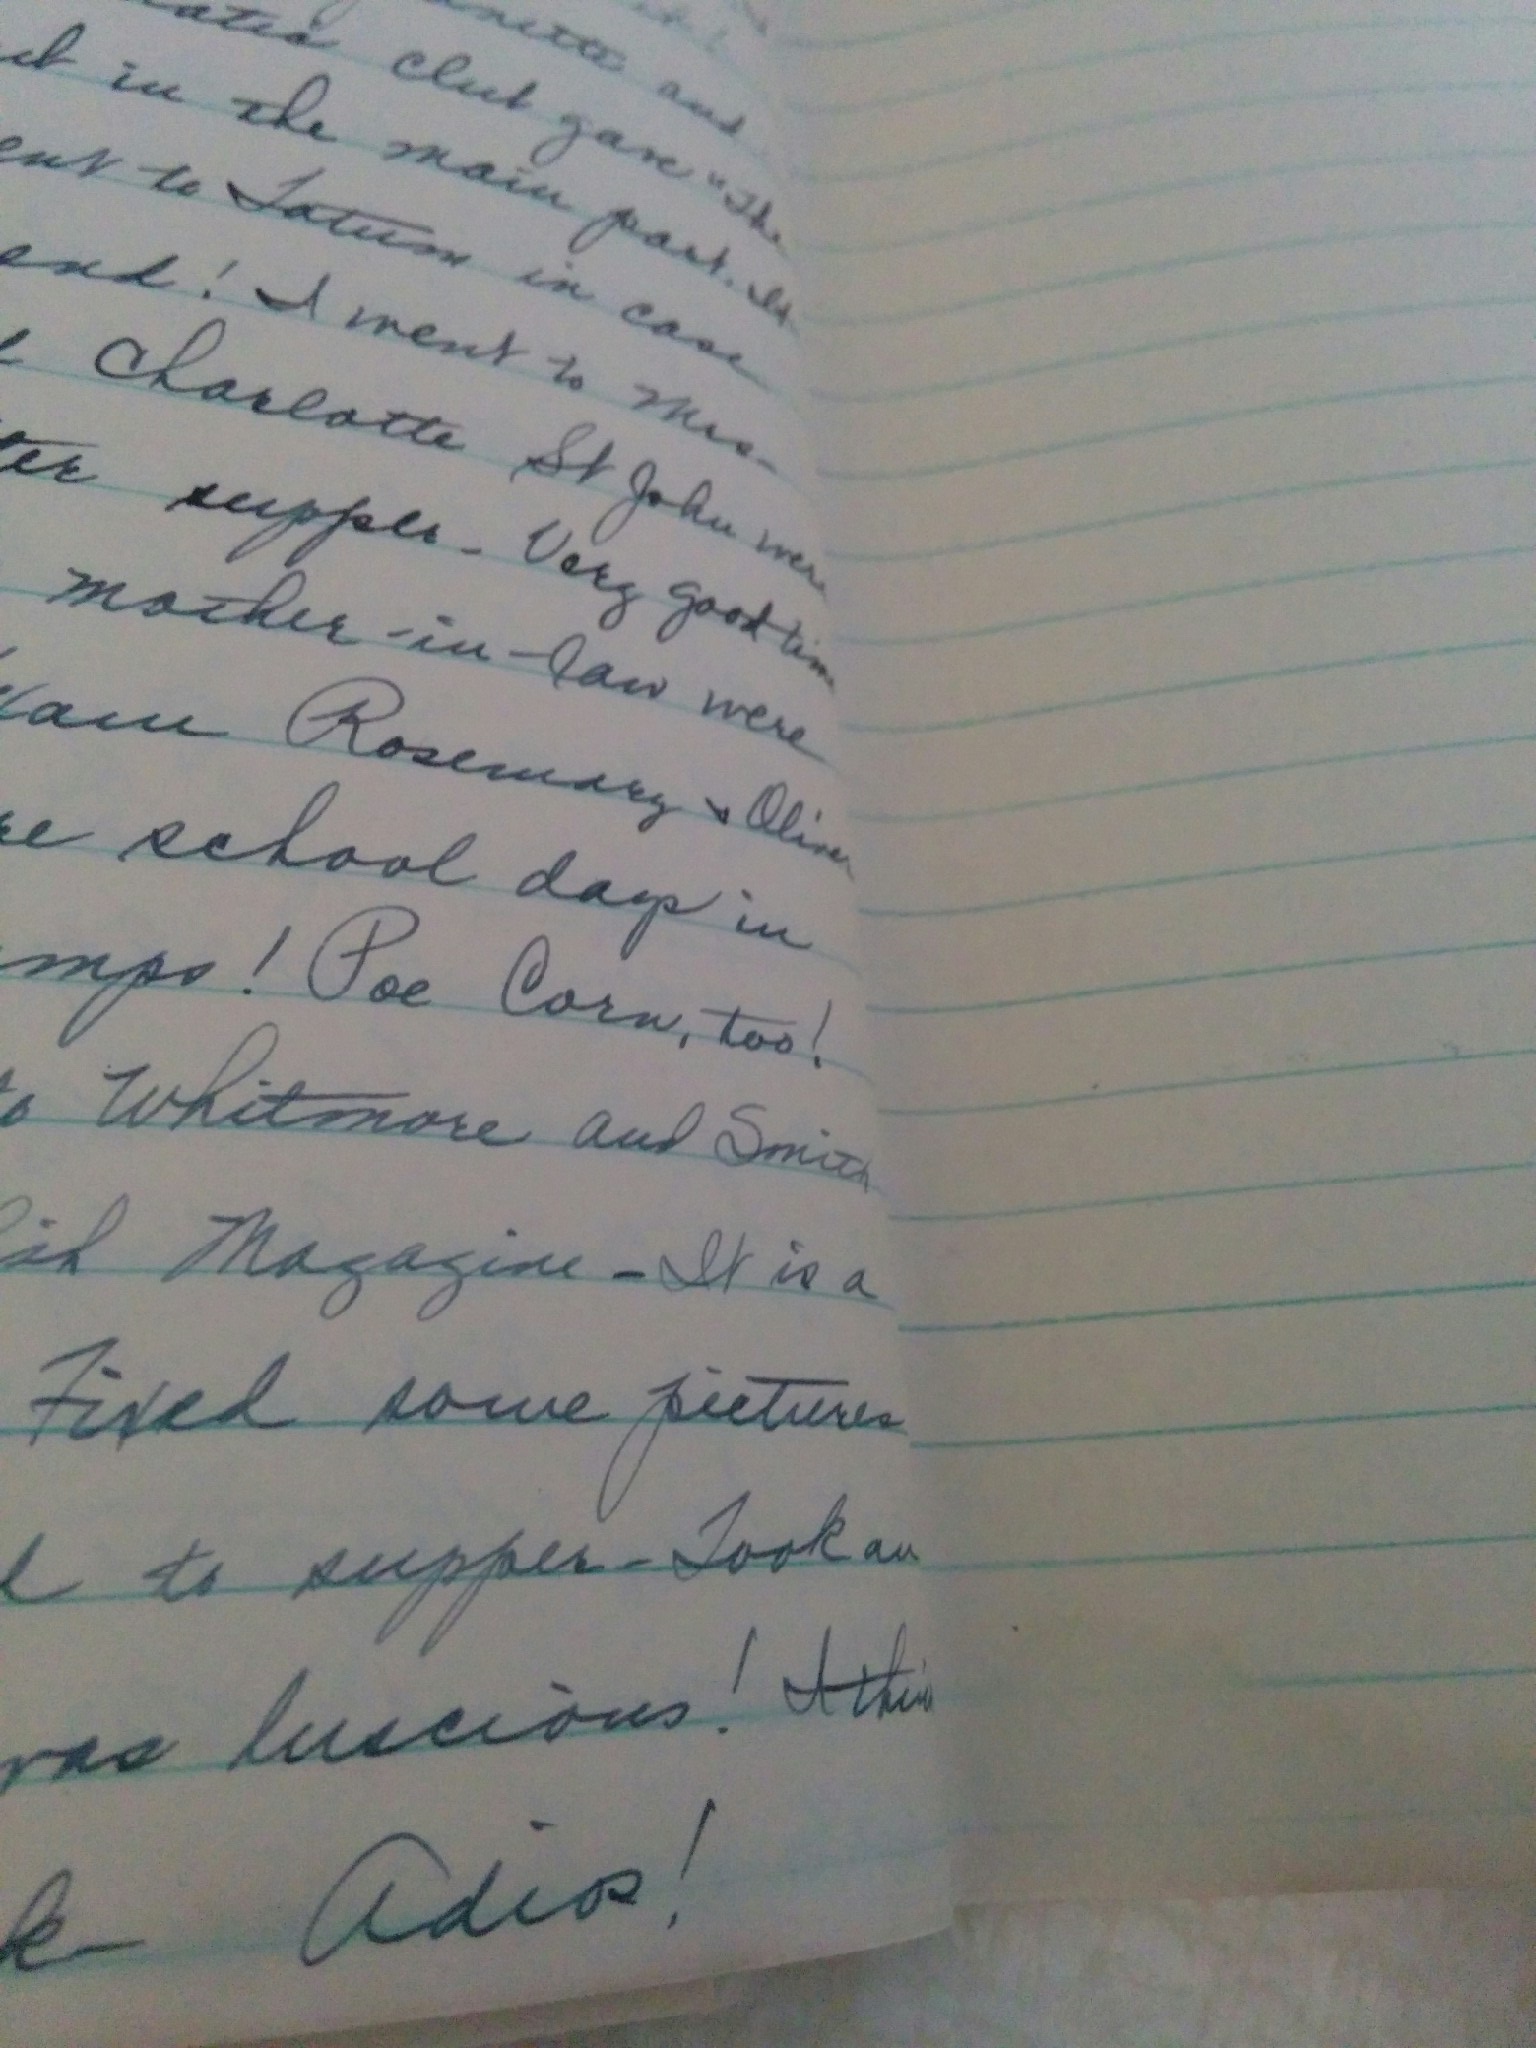 and
club gave "The
in the main part. It
to Tatum in case
end! I went to Mrs.
Charlotte St John were
supper - Very good time
mother-in-law were
Rosemary & Oliver
school days in
! Poe Corn, too!
to Whitmore and Smith
Magazine - It is a
Fixed some pictures
to supper - Took an
was luscious! I think
Adios!